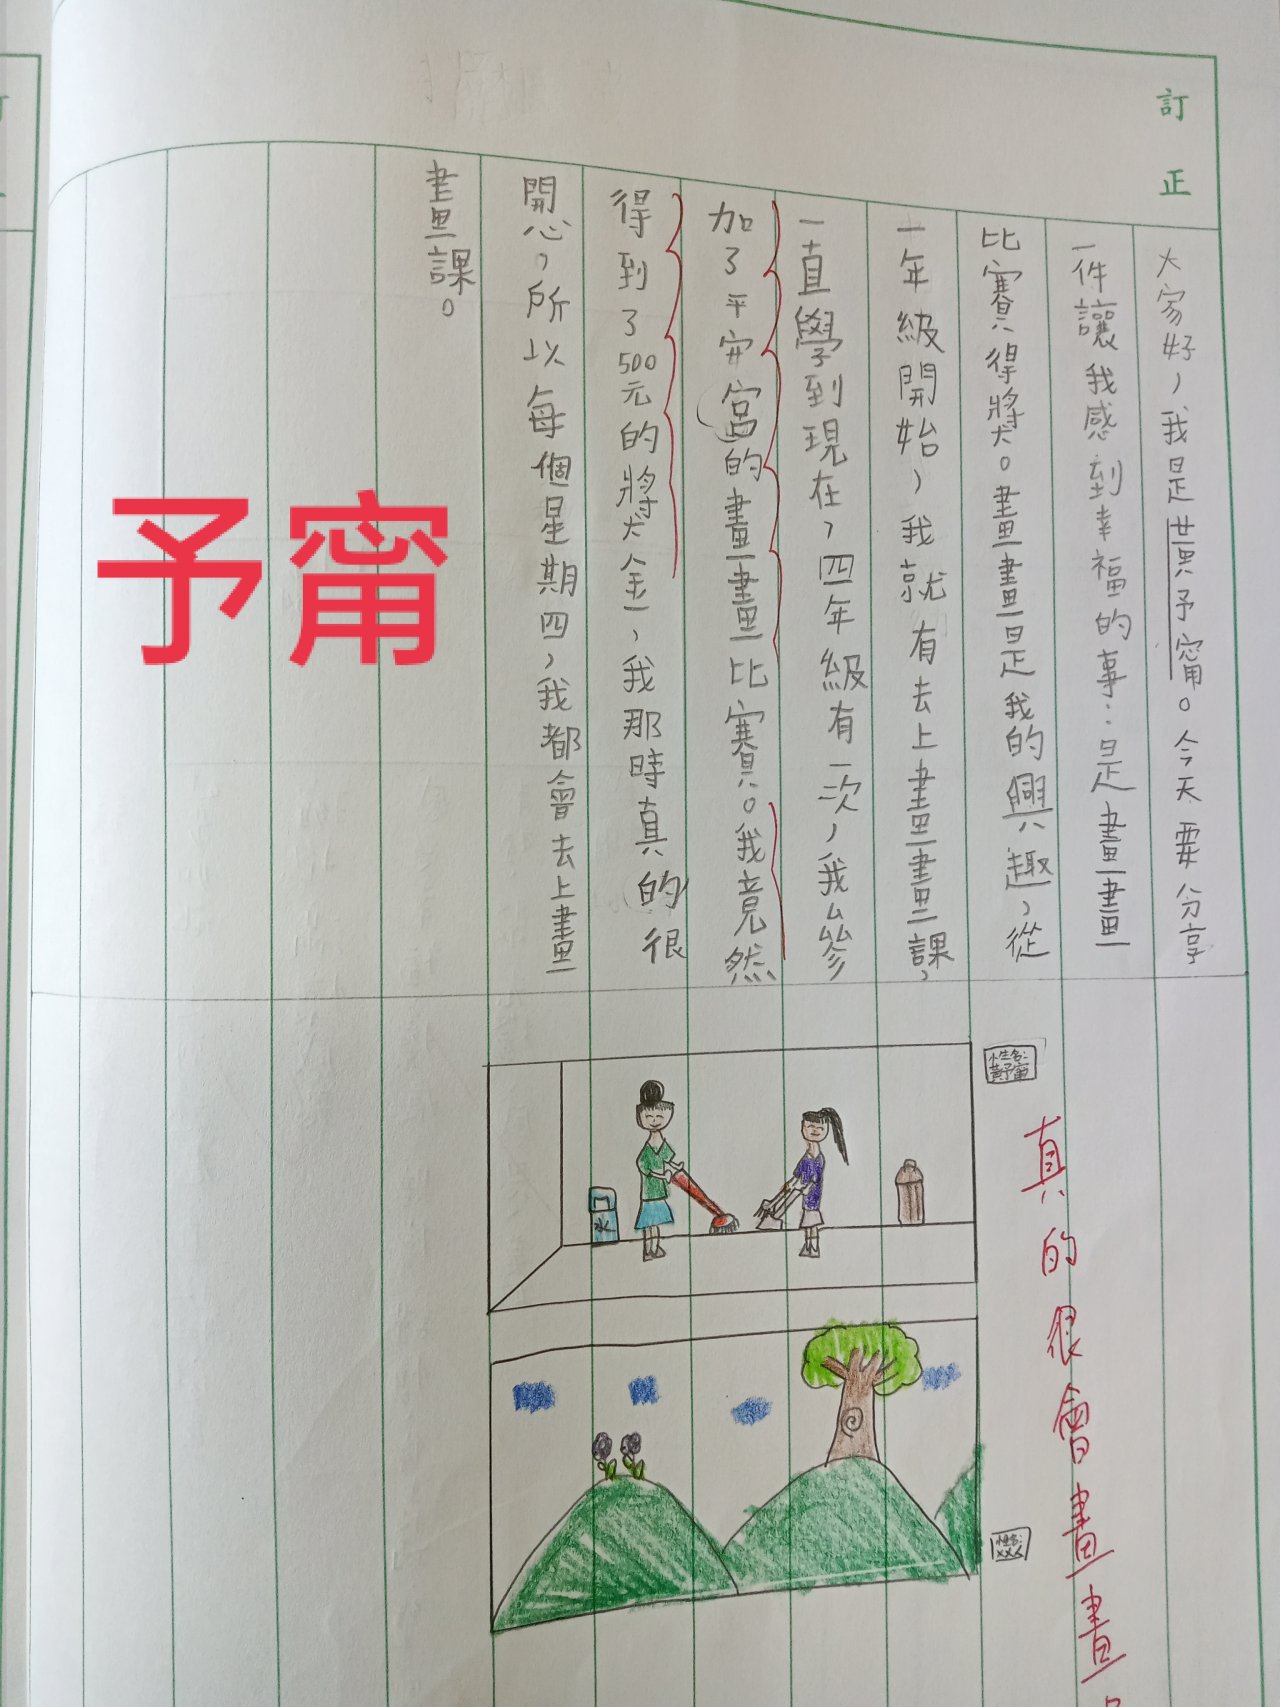 訂正
大家好，我是黃予甯。今天要分享
一件讓我感到幸福的事：是畫畫
比賽得獎。畫畫是我的興趣，從
一年級開始，我就有去上畫畫課，
一直學到現在，四年級有一次，我參
加了平安宮的畫畫比賽。我竟然
得到了500元的獎金，我那時真的很
開心，所以每個星期四，我都會去上畫
畫課。
予甯
姓名：
黃予甯
水
姓名：
XXX
真的很會畫畫